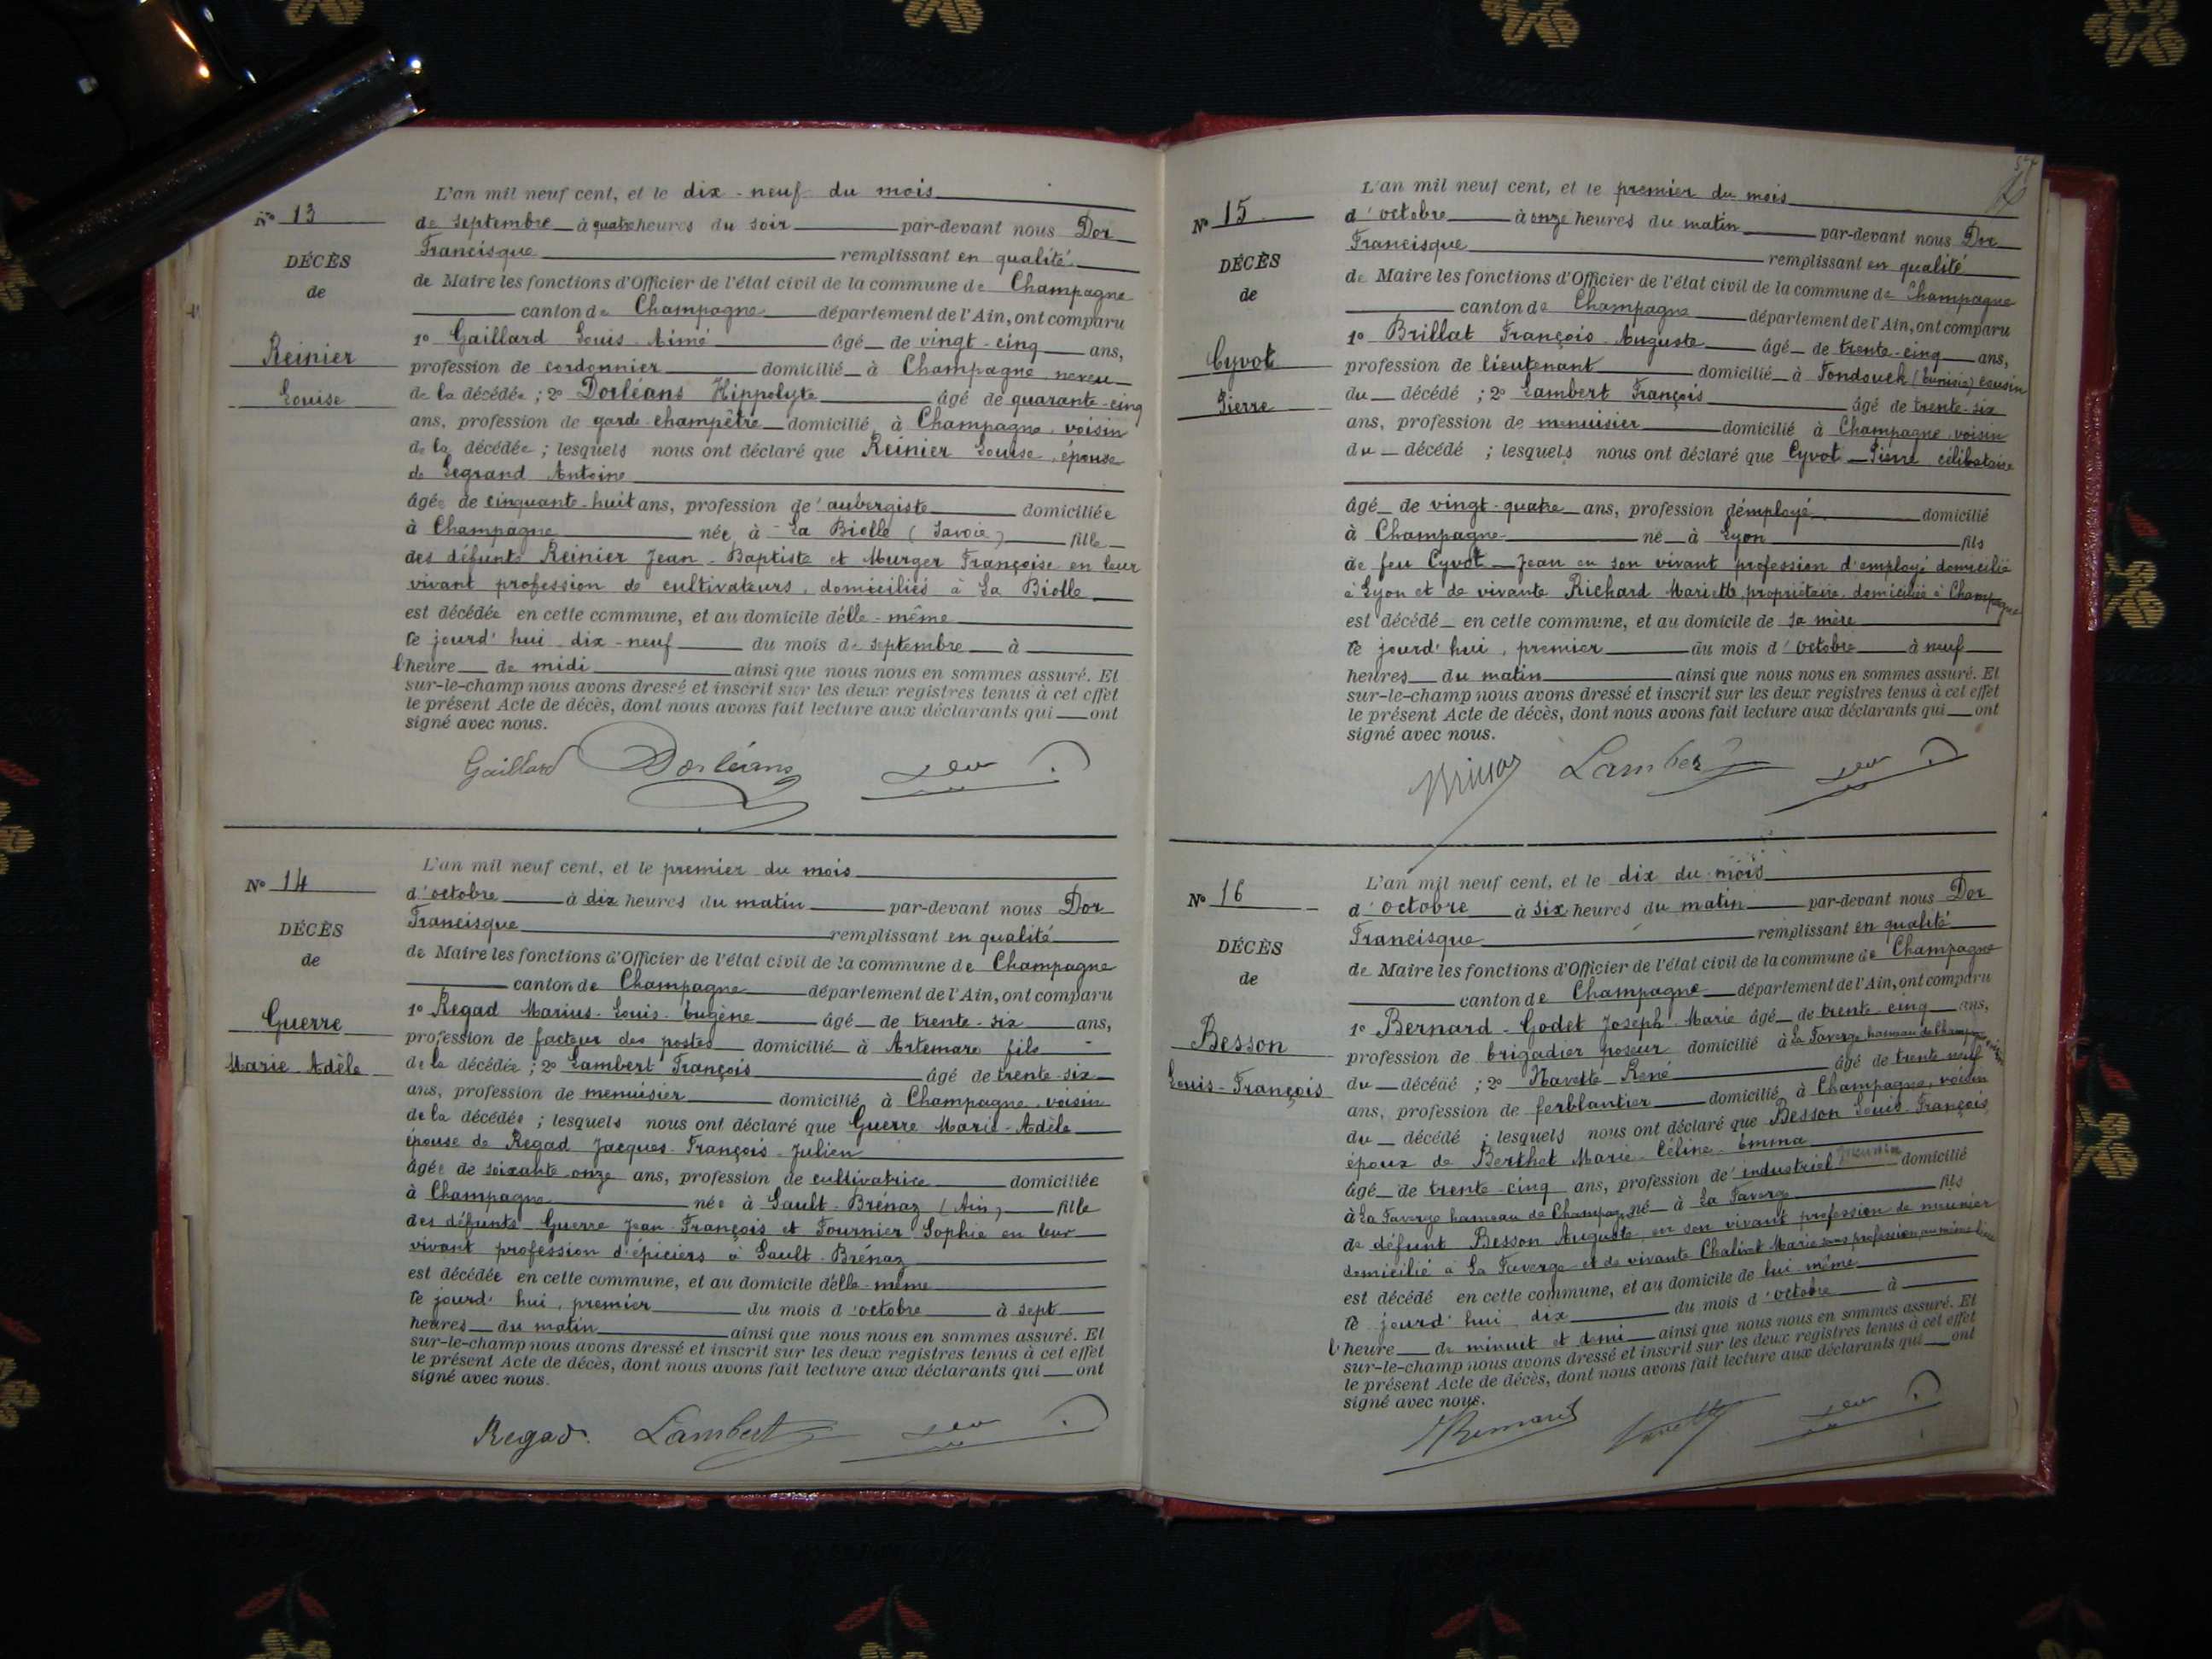 N° 13
DÉCÈS
de
Reinier
Louise
L'an mil neuf cent, et le dix-neuf du mois
de septembre à quatre heures du soir par-devant nous Dor
Francisque remplissant en qualité
de Maire les fonctions d'Officier de l'état civil de la commune de Champagne
canton de Champagne département de l'Ain, ont comparu
1° Gaillard Louis Aimé âgé de vingt-cinq ans,
profession de cordonnier domicilié à Champagne neveu
de la décédée ; 2° Dorléans Hippolyte âgé de quarante-cinq
ans, profession de garde champêtre domicilié à Champagne voisin
de la décédée ; lesquels nous ont déclaré que Reinier Louise, épouse
de Legrand Antoine
âgée de cinquante-huit ans, profession de d'aubergiste domiciliée
à Champagne née à La Biolle (Savoie) fille
des défunts Reinier Jean-Baptiste et Murger Françoise en leur
vivant profession de cultivateurs, domiciliés à La Biolle
est décédée en cette commune, et au domicile d'elle-même
le jourd'hui dix-neuf du mois de septembre à
l'heure de midi ainsi que nous nous en sommes assuré. Et
sur-le-champ nous avons dressé et inscrit sur les deux registres tenus à cet effet
le présent Acte de décès, dont nous avons fait lecture aux déclarants qui ont
signé avec nous.
Gaillard Dorléans
N° 14
DÉCÈS
de
Guerre
Marie Adèle
L'an mil neuf cent, et le premier du mois
d'octobre à dix heures du matin par-devant nous Dor
Francisque remplissant en qualité
de Maire les fonctions d'Officier de l'état civil de la commune de Champagne
canton de Champagne département de l'Ain, ont comparu
1° Regad Marius-Louis-Eugène âgé de trente-six ans,
profession de facteur des postes domicilié à Artemare fils
de la décédée ; 2° Lambert François âgé de trente-six
ans, profession de menuisier domicilié à Champagne voisin
de la décédée ; lesquels nous ont déclaré que Guerre Marie-Adèle
épouse de Regad Jacques François Julien
âgée de soixante onze ans, profession de cultivatrice domiciliée
à Champagne née à Sault-Brénaz (Ain) fille
des défunts Guerre Jean-François et Fournier Sophie en leur
vivant profession d'épiciers à Sault-Brénaz
est décédée en cette commune, et au domicile d'elle-même
le jourd'hui, premier du mois d'octobre à sept
heures du matin ainsi que nous nous en sommes assuré. Et
sur-le-champ nous avons dressé et inscrit sur les deux registres tenus à cet effet
le présent Acte de décès, dont nous avons fait lecture aux déclarants qui ont
signé avec nous.
Regad. Lambert
N° 15
DÉCÈS
de
Cyvot
Pierre
L'an mil neuf cent, et le premier du mois
d'octobre à onze heures du matin par-devant nous Dor
Francisque remplissant en qualité
de Maire les fonctions d'Officier de l'état civil de la commune de Champagne
canton de Champagne département de l'Ain, ont comparu
1° Brillat François Auguste âgé de trente-cinq ans,
profession de lieutenant domicilié à Fondouck (Tunisie) cousin
du décédé ; 2° Lambert François âgé de trente-six
ans, profession de menuisier domicilié à Champagne voisin
du décédé ; lesquels nous ont déclaré que Cyvot Pierre célibataire
âgé de vingt-quatre ans, profession d'employé domicilié
à Champagne né à Lyon fils
de feu Cyvot Jean en son vivant profession d'employé domicilié
à Lyon et de vivante Richard Mariette, propriétaire domiciliée à Champagne
est décédé en cette commune, et au domicile de sa mère
le jourd'hui, premier du mois d'octobre à neuf
heures du matin ainsi que nous nous en sommes assuré. Et
sur-le-champ nous avons dressé et inscrit sur les deux registres tenus à cet effet
le présent Acte de décès, dont nous avons fait lecture aux déclarants qui ont
signé avec nous.
Lambert
N° 16
DÉCÈS
de
Besson
Louis-François
L'an mil neuf cent, et le dix du mois
d'octobre à six heures du matin par-devant nous Dor
Francisque remplissant en qualité
de Maire les fonctions d'Officier de l'état civil de la commune de Champagne
canton de Champagne département de l'Ain, ont comparu
1° Bernard-Godet Joseph-Marie âgé de trente-cinq ans,
profession de brigadier poseur domicilié à La Taverge hameau de Champagne voisin
du décédé ; 2° Navette René âgé de trente neuf
ans, profession de ferblantier domicilié à Champagne, voisin
du décédé ; lesquels nous ont déclaré que Besson Louis-François
époux de Berthet Marie-Céline-Emma
âgé de trente-cinq ans, profession de d'industriel domicilié
à La Taverge hameau de Champagne né à La Taverge fils
de défunt Besson Auguste, en son vivant profession de meunier
domicilié à La Taverge et de vivante Chalixt Marie sans profession au même lieu
est décédé en cette commune, et au domicile de lui même
le jourd'hui dix du mois d'octobre à
l'heure de minuit et demi ainsi que nous nous en sommes assuré. Et
sur-le-champ nous avons dressé et inscrit sur les deux registres tenus à cet effet
le présent Acte de décès, dont nous avons fait lecture aux déclarants qui ont
signé avec nous.
Bernard Navette